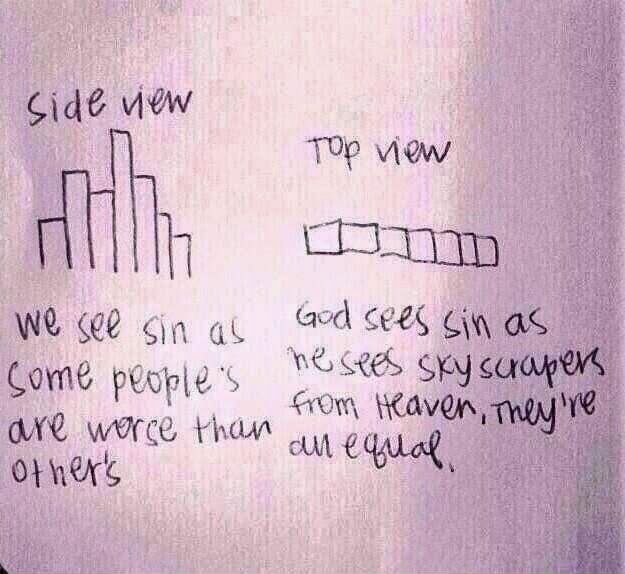 Side view
Top view
We see sin as
some people's
are worse than
other's
God sees sin as
he sees skyscrapers
from Heaven, They're
all equal.